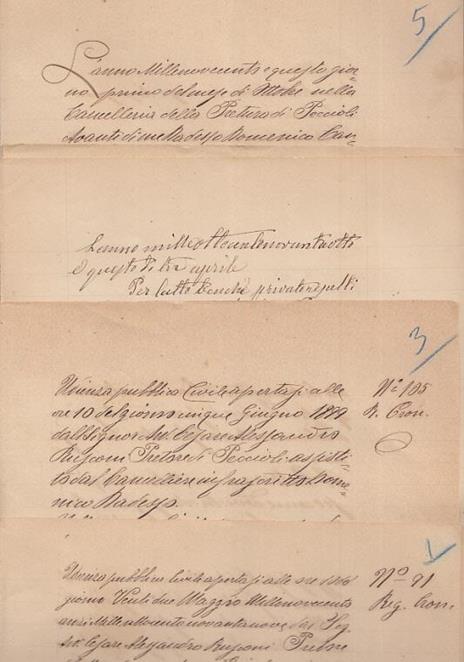 5
L'anno Millenovecento e questo gior=
no primo del mese di Ottobre nella
Cancelleria della Pretura di Peccioli
Avanti di me Badessa Domenico Can=
L'anno milleottocentonovantotto
e questo dì tre aprile
Per tutto benché privato
3
Udienza pubblica Civile apertasi alle
ore 10 del giorno cinque Giugno 1899
dall'Signor Avv. Cesare Alessandro
Rusconi Pretore di Peccioli assisti=
to dal Cancelliere infrascritto Dome=
nico Badessa.
N.º 105
R. Cron.
Udienza pubblica Civile apertasi alle ore
giorno Venti due Maggio Millenovecento
anzi Mille ottocentonovantanove dal Sig.
Avv. Cesare Alessandro Rusconi Pretore
Nº 91
Reg. Cron.